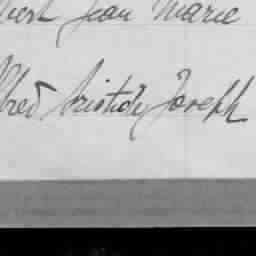 bert Jean Marie
lfred Aristide Joseph